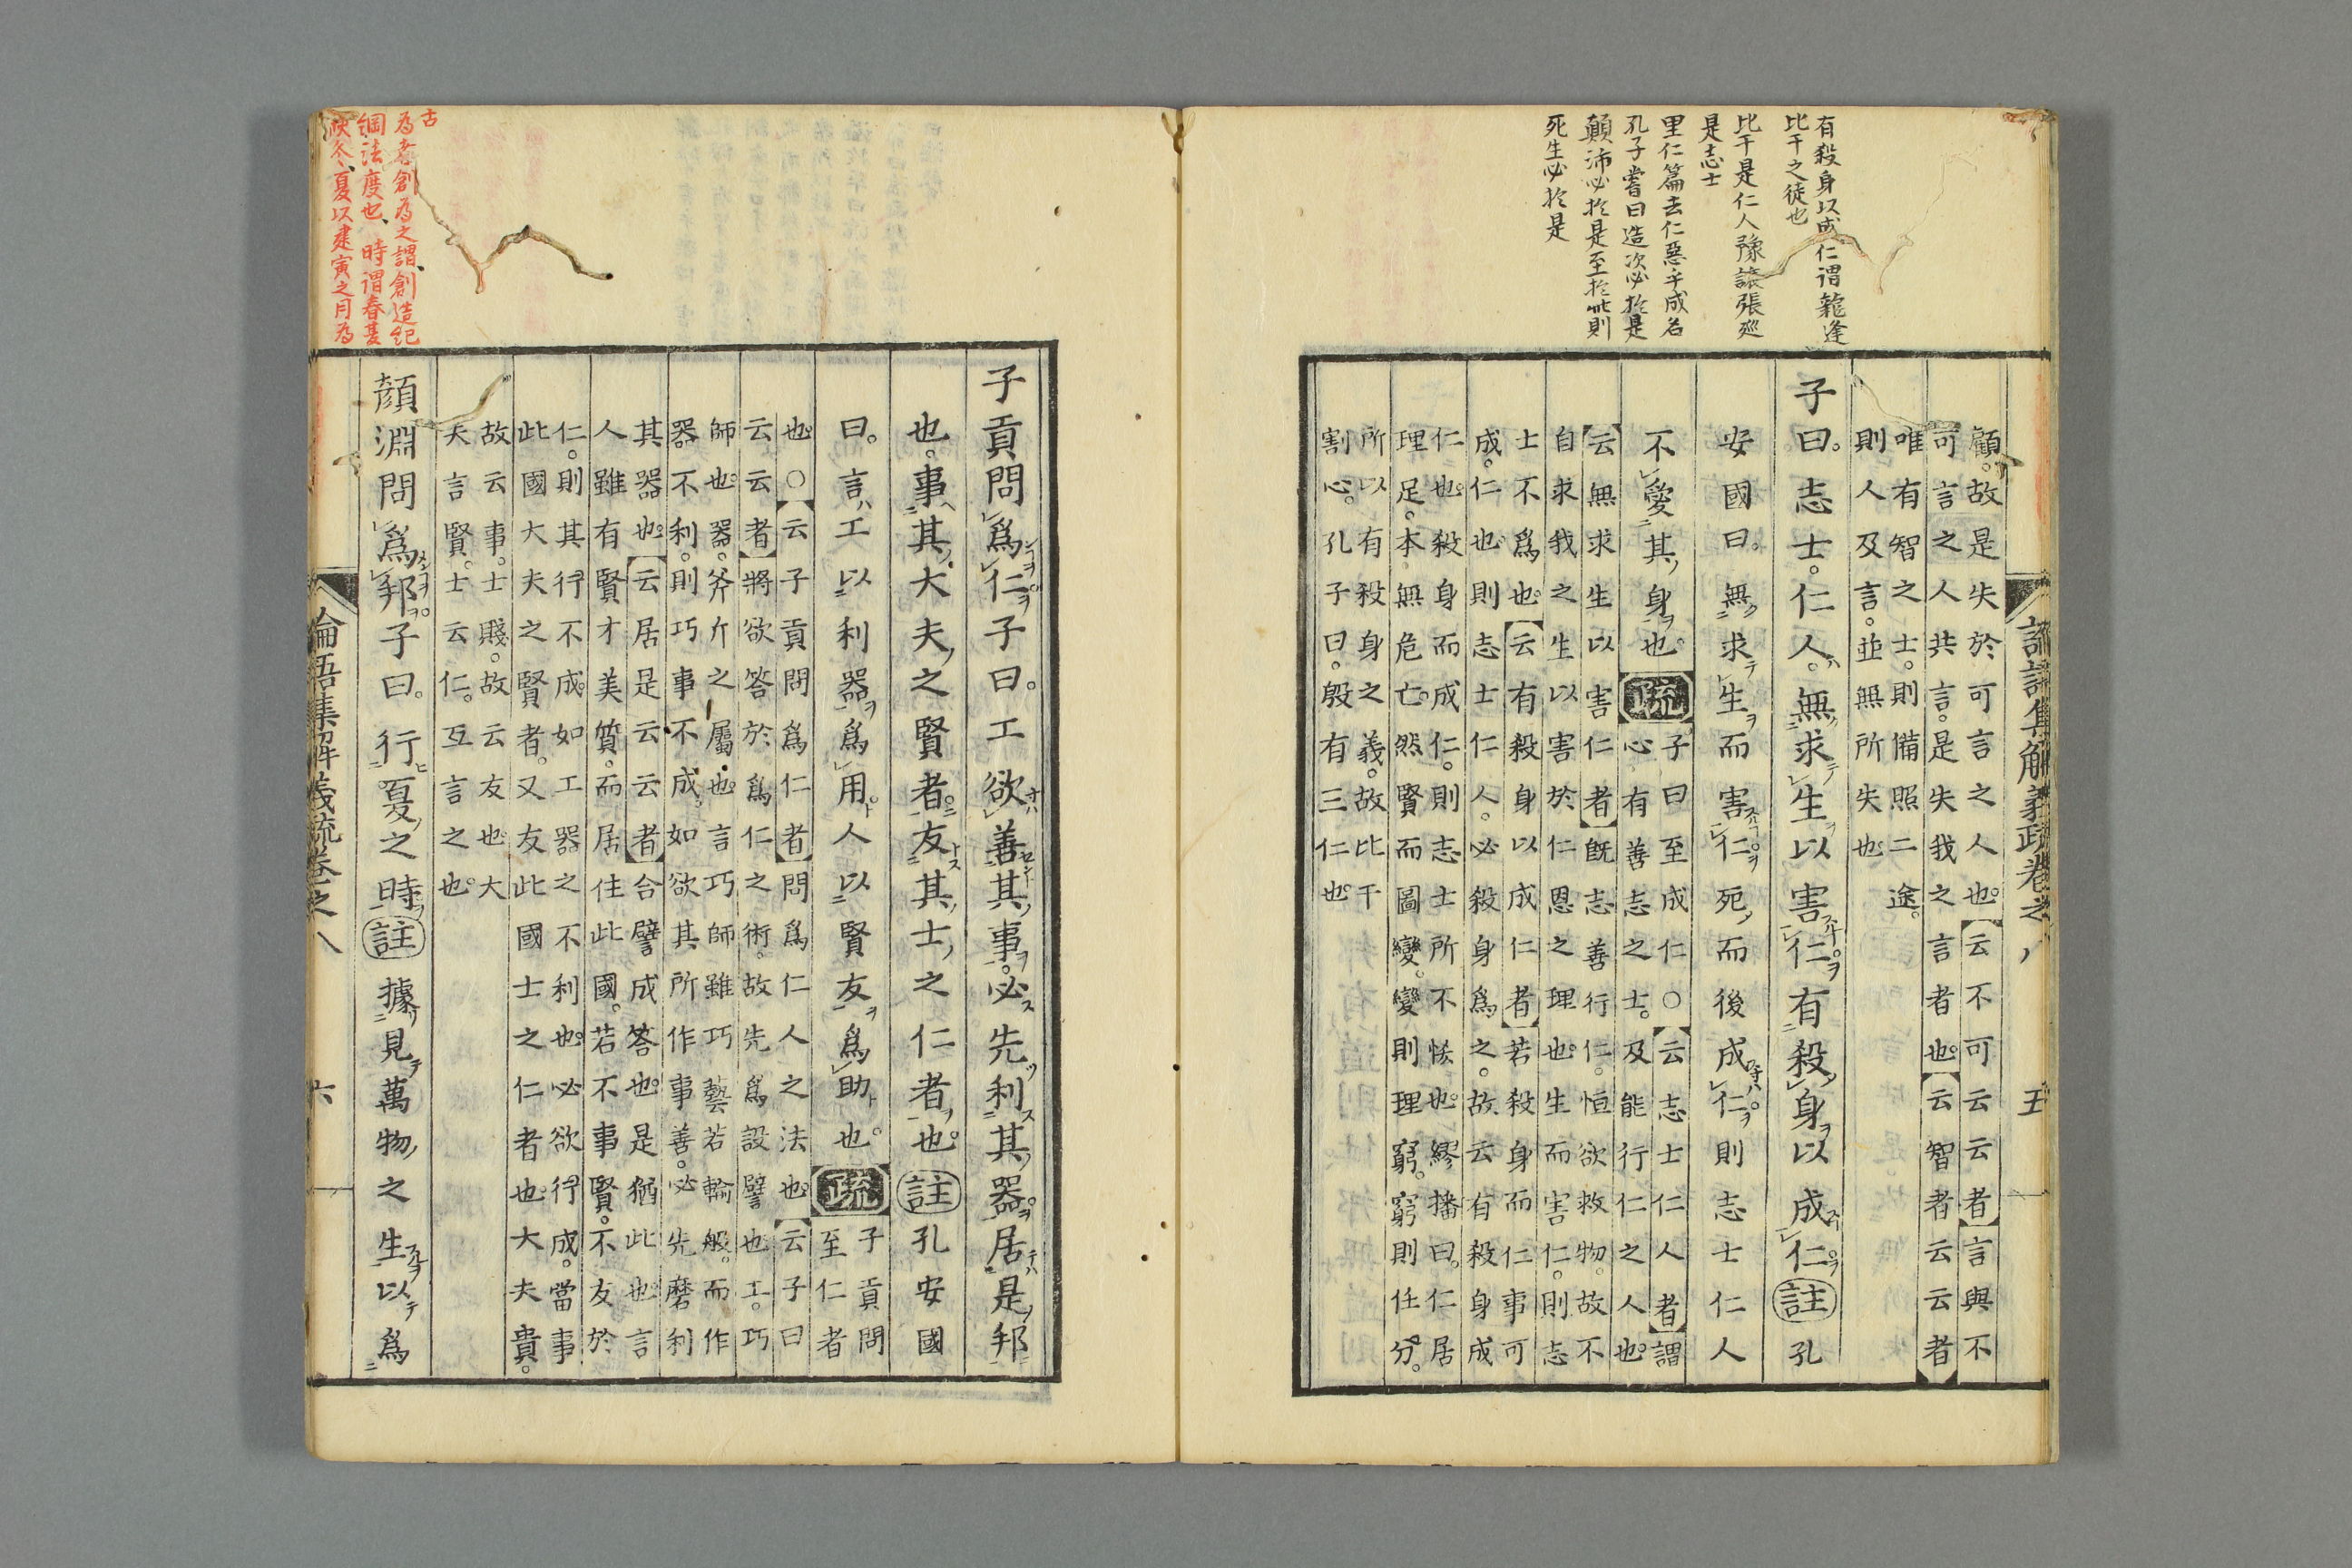 有殺身以成仁謂龍逢
比干之徒也
比干是仁人豫讓張巡
是志士
里仁篇去仁惡乎成名
孔子嘗曰造次必於是
顛沛必於是至於此則
死生必於是
論語集解義疏卷之八
五
顧。故是失於可言之人也。云不可云云者言與不
可言之人共言。是失我之言者也。云智者云云者
唯有智之士。則備照二途。
則人及言。並無所失也
子曰。志士。仁人。無求生以害仁有殺身以成仁註孔
安國曰。無求生而害仁死而後成仁則志士仁人
不愛其身也。疏子曰至成仁○云志士仁人者謂
心有善志之士。及能行仁之人也。
云無求生以害仁者既志善行仁。恒欲救物。故不
自求我之生以害於仁恩之理也。生而害仁。則志
士不爲也。云有殺身以成仁者若殺身而仁事可
成。仁也。則志士仁人。必殺身爲之。故云有殺身成
仁也。殺身而成仁。則志士所不悋也。繆播曰。仁居
理足。本無危亡。然賢而圖變。變則理窮。窮則任分。
所以有殺身之義。故比干
割心。孔子曰。殷有三仁也。
子貢問爲仁子曰。工欲善其事。必先利其器居是邦
也。事其大夫之賢者。友其士之仁者也。註孔安國
曰。言工以利器爲用。人以賢友爲助也。疏子貢問
至仁者
也。○云子貢問爲仁者問爲仁人之法也。云子曰
云云者將欲答於爲仁之術。故先爲設譬也。工。巧
師也。器。斧斤之屬也。言巧師雖巧藝若輪般。而作
器不利。則巧事不成。如欲其所作事善。必先磨利
其器也。云居是云云者合譬成答也。是猶此也。言
人雖有賢才美質。而居住此國。若不事賢。不友於
仁。則其行不成。如工器之不利也。必欲行成。當事
此國大夫之賢者。又友此國士之仁者也。大夫貴。
故云事。士賤。故云友也。大
夫言賢。士云仁。互言之也。
顔淵問爲邦。子曰。行夏之時註據見萬物之生以爲
論語集解義疏卷之八
六
古
為者創為之謂、創造紀
綱法度也、時謂春夏
秋冬、夏以建寅之月為